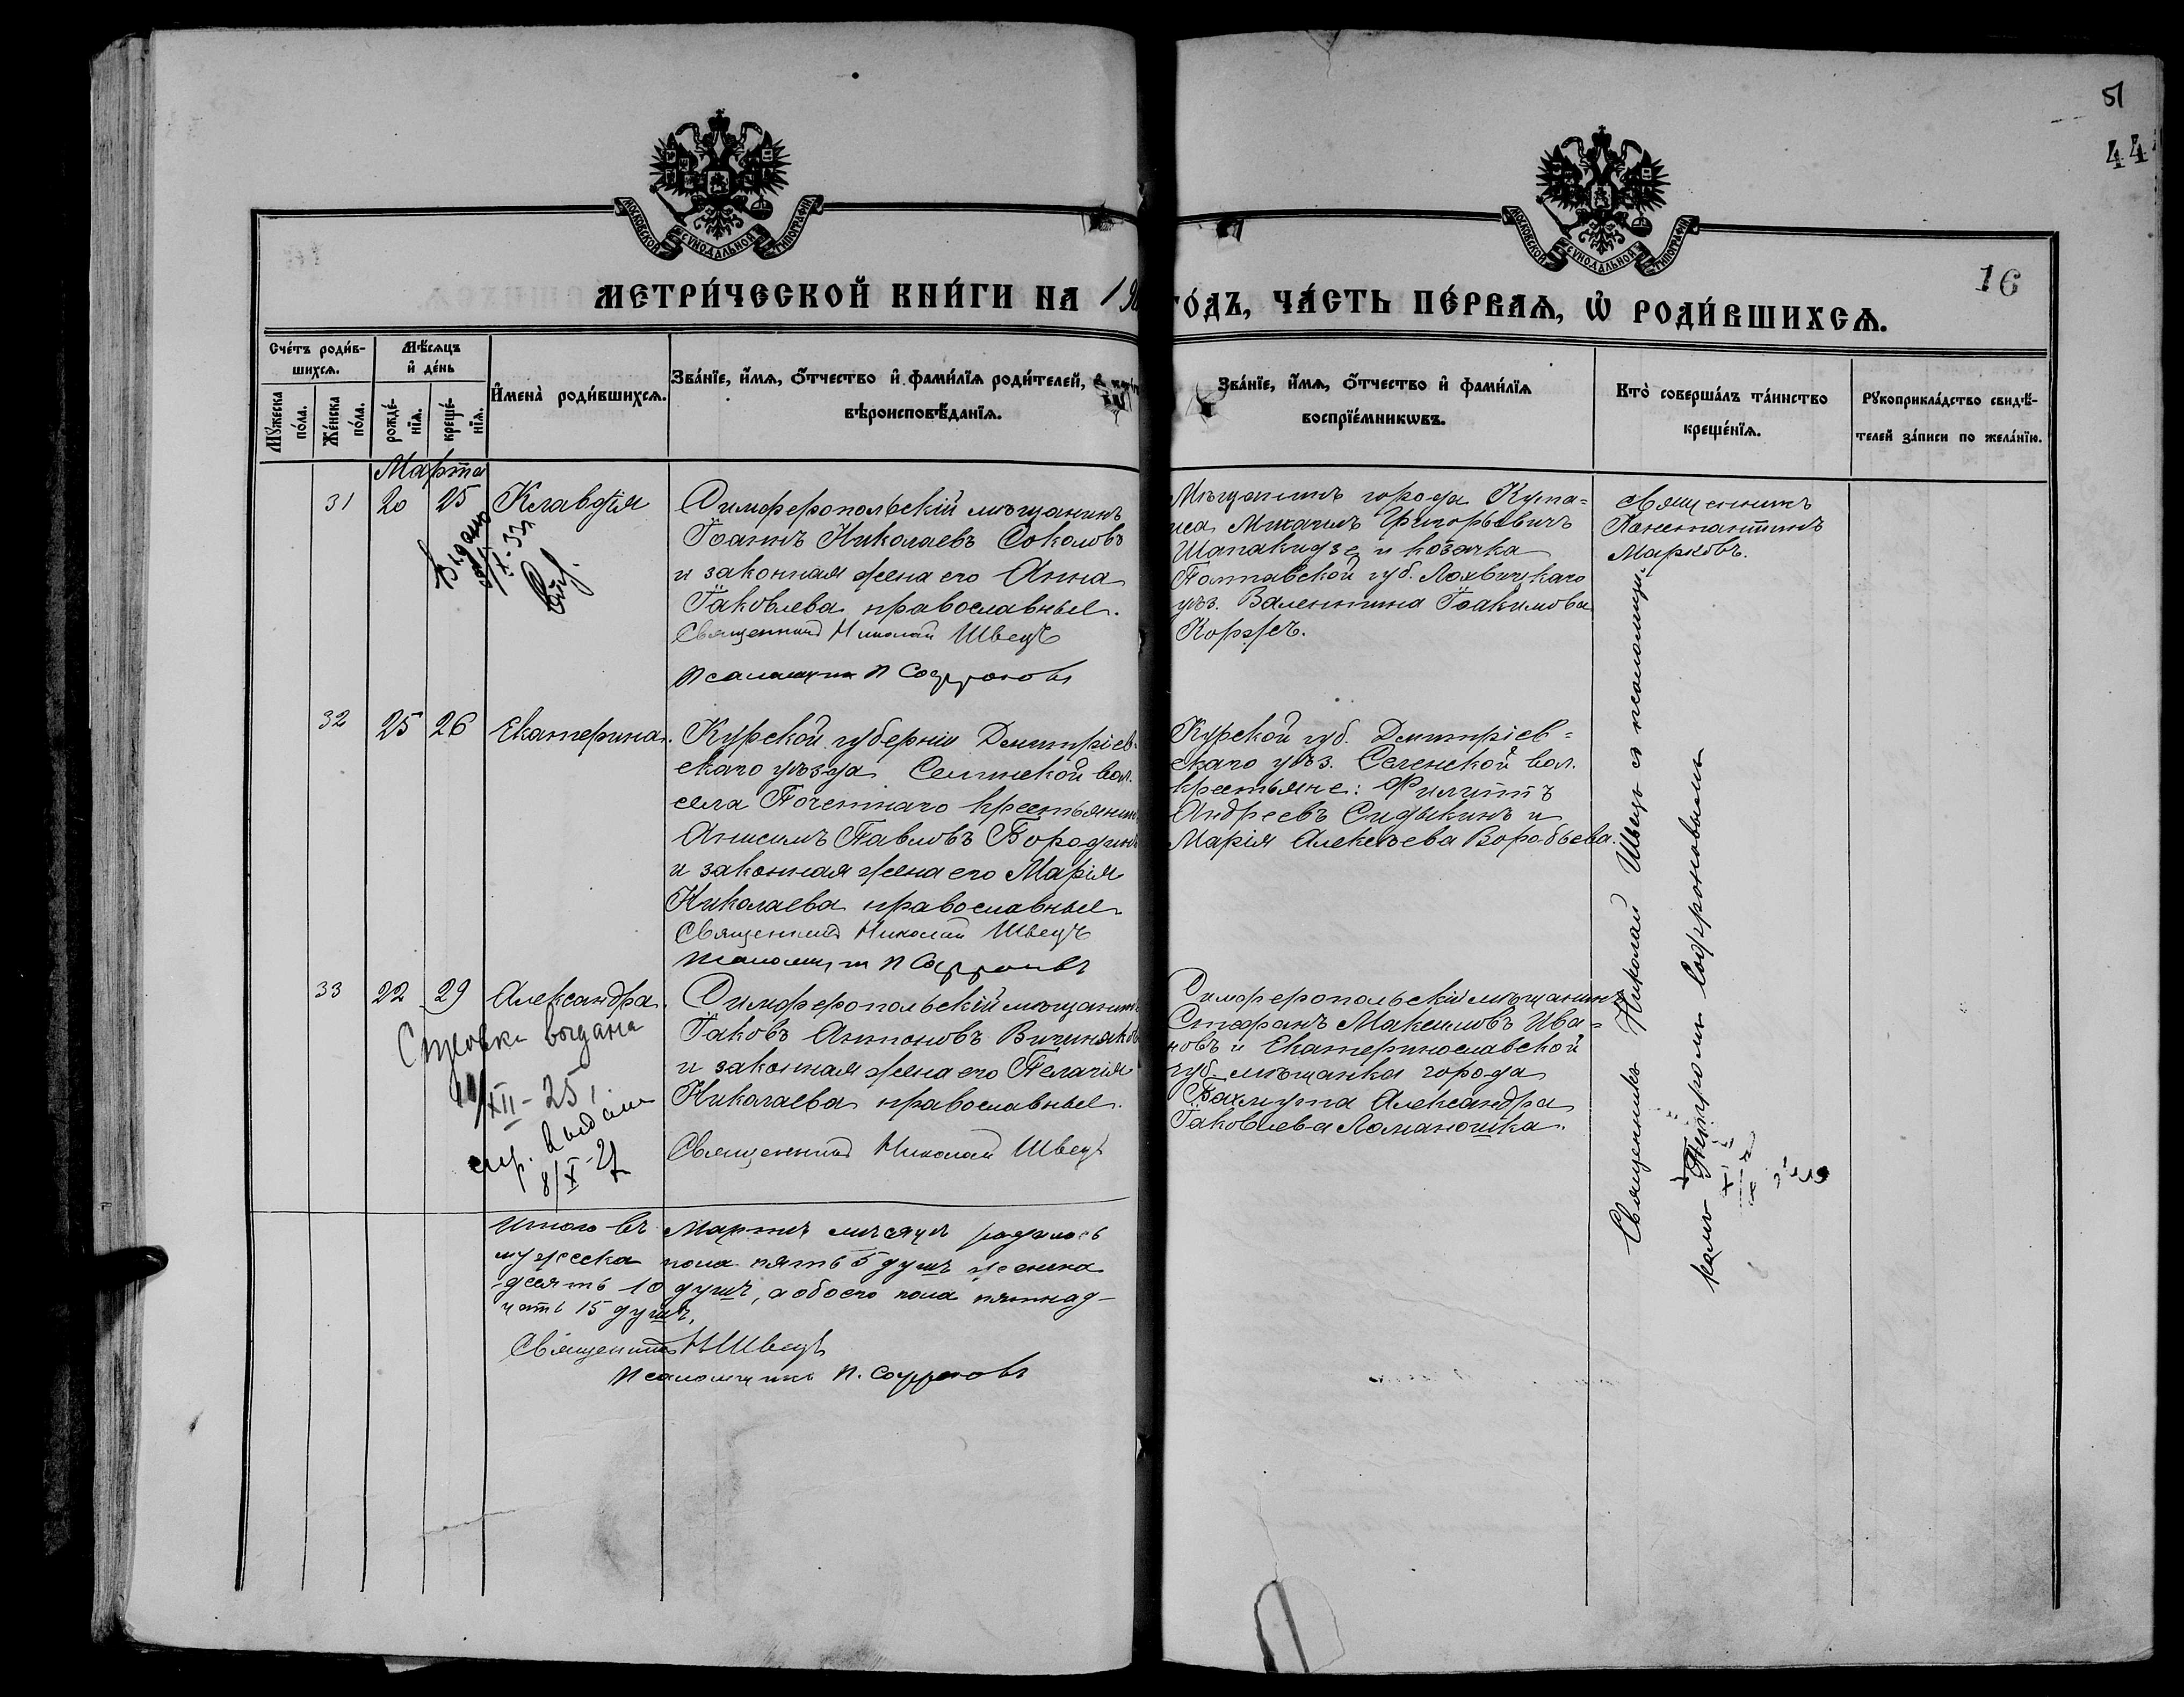 51
44
16
МОСКОВСКОЙ СѴНОДАЛЬНОЙ ТИПОГРАФІИ
МОСКОВСКОЙ СѴНОДАЛЬНОЙ ТИПОГРАФІИ
МЕТРИ́ЧЕСКОЙ КНИ́ГИ НА 19
ГО́ДЪ, ЧА́СТЬ ПЕ́РВАѦ, Ѡ҆ РОДИ́ВШИХСѦ.
Сче́тъ роди́в-
шихсѧ.
Мꙋ́жеска по́ла.
Же́нска по́ла.
Мѣ́сѧцъ
и҆ де́нь
рожде́-
нїѧ.
креще́-
нїѧ.
И҆мена̀ роди́вшихсѧ.
Зва́нїе, и҆́мѧ, ѻ҆́тчество и҆ фами́лїѧ роди́телей,
вѣроисповѣ́данїѧ.
Зва́нїе, и҆́мѧ, ѻ҆́тчество и҆ фами́лїѧ
воспрїе́мникѡвъ.
Кто̀ соверша́лъ та́инство
креще́нїѧ.
Рꙋкоприкла́дство свидѣ́-
телей за́писи по жела́нїю.
Марта
31 20 25 Клавдія
Симферопольскій мѣщанинъ
Іоаннъ Николаевъ Соколовъ
и законная жена его Анна
Іаковлева православные.
Священникъ Николай Швецъ
Псаломщикъ П Софроновъ
Мѣщанинъ города Кута-
иса Михаилъ Григорьевичъ
Шапакидзе и козачка
Полтавской губ. Лохвицкаго
уѣз. Валентина Іоакимова
Коржъ.
Священникъ
Константинъ
Марковъ.
Выдано
32 25 26 Екатерина.
Курской губерніи Дмитріев-
скаго уѣзда Селинской вол.
села Почетнаго крестьянин
Анисимъ Павловъ Бородин
и законная жена его Марія
Николаева православные.
Священникъ Николай Швецъ
Псаломщикъ П Софроновъ
Курской губ. Дмитріев-
скаго уѣз. Селенской вол.
крестьяне: Филиппъ
Андреевъ Сидыкинъ и
Марія Алексѣева Воробьева.
33 22 29 Александра.
Симферопольскій мѣщанинъ
Іаковъ Антоновъ Вичиняков
и законная жена его Пелагія
Николаева православные.
Священникъ Николай Швецъ
Симферопольскій мѣщанинъ
Стефанъ Максимовъ Ива-
новъ и Екатеринославской
губ. мѣщанка города
Бахмута Александра
Іаковлева Ломаношка.
выдана
XII-25
спр. выдана
8/X-27
Священникъ Николай Швецъ съ псаломщи-
комъ Петромъ Софроновымъ
Итого въ Мартѣ мѣсяцѣ родилось
мужеска пола пять 5 душъ женска
десять 10 душъ, а обоего пола пятнад-
цать 15 душъ.
Священникъ Н Швецъ
Псаломщикъ П. Софроновъ